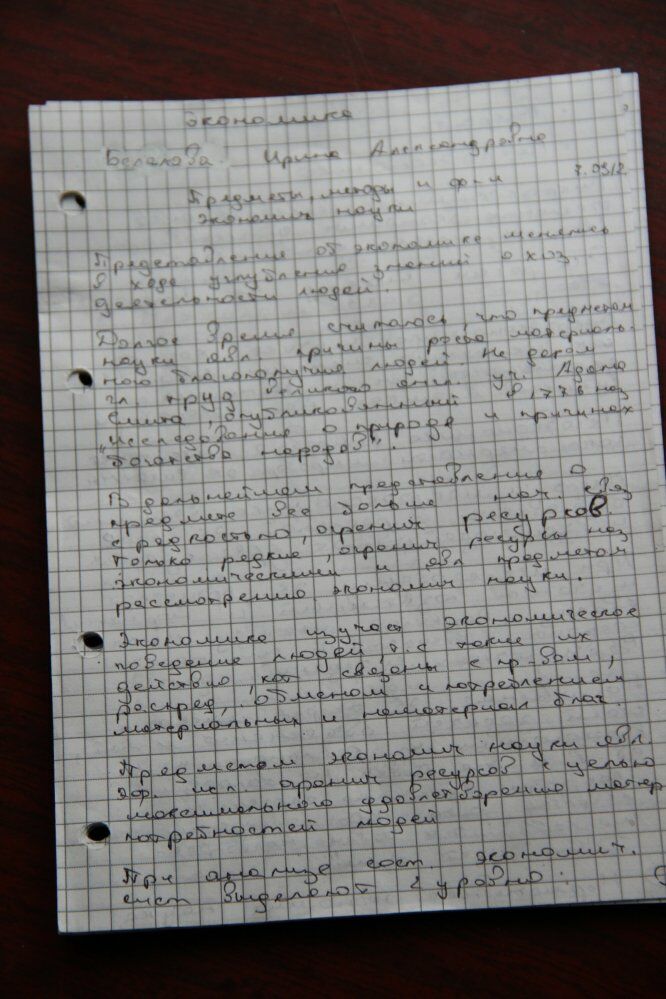 Экономика
Ирина Александровна
7.09.12
Предметы, методы и ф-и
экономич науки
Представление об экономике менялись
в ходе углубления знаний о хоз
деятельности людей.
Долгое время считалось, что предметом
науки явл причины роста материаль-
ного благополучия людей. Не даром
гл труд великого англ. уч. Адама
Смита, опубликованный в 1776 наз
"исследование о природе и причинах
богатства народов".
В дальнейшем представления о
предмете все больше нач. связ
с редкостью, огранич ресурсов
Только редкие, огранич ресурсы наз
экономическими и явл предметом
рассмотрения экономич науки.
Экономика изучает экономическое
поведение людей, т.е такие их
действия, кот связаны с пр-вом,
распред, обменом и потреблением
материальных и нематериал благ.
Предметом экономич науки явл.
эф. исп. огранич ресурсов с целью
максимального удовлетворения матер
потребностей людей
При анализе сост. экономич.
сист выделяют 2 уровня: